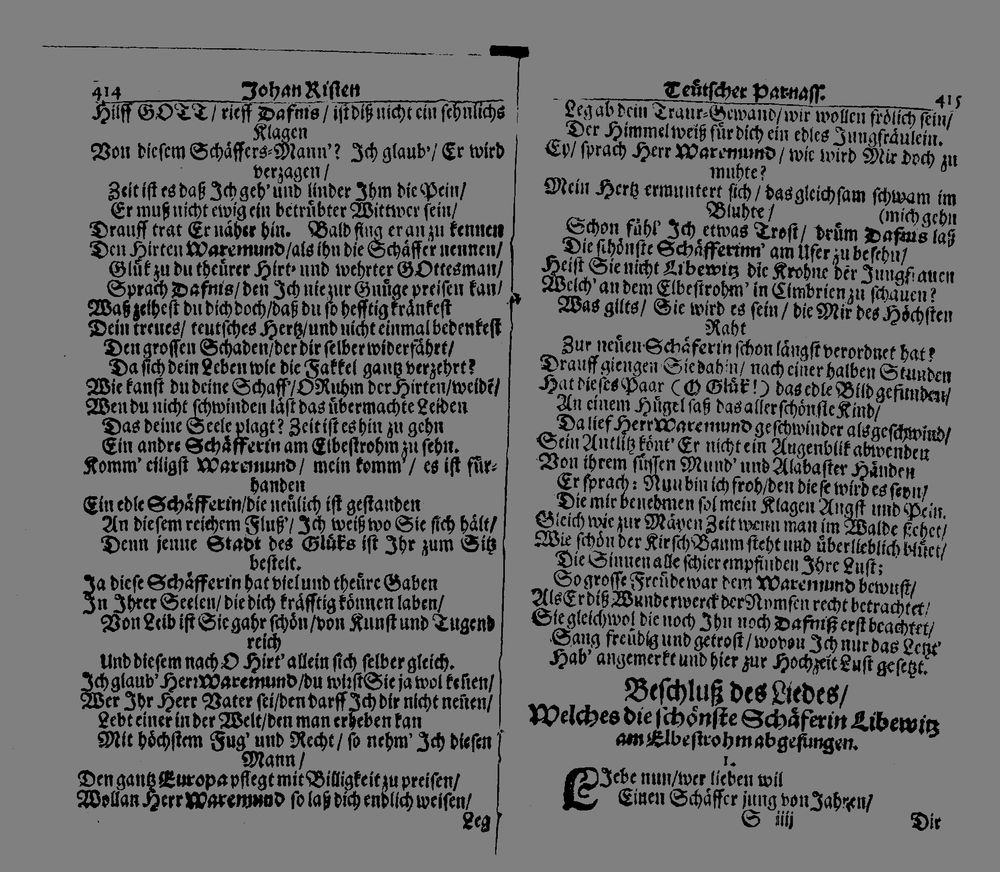 414 Johan Risten
Hilff GOTT / rieff Dafnis / ist diß nicht ein sehnlichs
Klagen
Von diesem Schäffers-Mann'? Ich glaub' / Er wird
verzagen /
Zeit ist es daß Ich geh' und linder Ihm die Pein /
Er muß nicht ewig ein betrübter Wittwer sein /
Drauff trat Er näher hin. Bald fing er an zu kennen
Den Hirten Waremund / als ihn die Schäffer nennen /
Glük zu du theürer Hirt' und wehrter GOttesman /
Sprach Dafnis / den Ich nie zur Gnüge preisen kan /
Waß zeihest du dich doch / daß du so hefftig kränkest
Dein treues / teutsches Hertz / und nicht einmal bedenkest
Den grossen Schaden / der dir selber widerfährt /
Da sich dein Leben wie die Fakkel gantz verzehrt?
Wie kanst du deine Schaff' / O Ruhm der Hirten / weide /
Wen du nicht schwinden läst das übermachte Leiden
Das deine Seele plagt? Zeit ist es hin zu gehn
Ein andre Schäfferin am Elbestrohm zu sehn.
Komm' eiligst Waremund / mein komm' / es ist für-
handen
Ein edle Schäfferin / die neülich ist gestanden
An diesem reichem Fluß' / Ich weiß wo Sie sich hält /
Denn jenne Stadt des Glüks ist Ihr zum Sitz
bestelt.
Ja diese Schäfferin hat viel und theüre Gaben
In Ihrer Seelen / die dich kräfftig können laben /
Von Leib ist Sie gahr schön / von Kunst und Tugend
reich
Und diesem nach O Hirt' allein sich selber gleich.
Ich glaub' Herr Waremund / du wirst Sie ja wol kennen /
Wer Ihr Herr Vater sei / den darff Ich dir nicht nennen /
Lebt einer in der Welt / den man erheben kan
Mit höchstem Fug' und Recht / so nehm' Ich diesen
Mann /
Den gantz Europa pflegt mit Billigkeit zu preisen /
Wollan Herr Waremund so laß dich endlich weisen /
Leg
Teütscher Parnass. 415
Leg ab dein Traur-Gewand / wir wollen frölich sein /
Der Himmel weiß für dich ein edles Jungfräulein.
Ey / sprach Herr Waremund / wie wird Mir doch zu
muhte?
Mein Hertz ermuntert sich / das gleichsam schwam im
Bluhte / (mich gehn
Schon fühl' Ich etwas Trost / drüm Dafnis laß
Die schönste Schäfferinn' am Ufer zu besehn /
Heist Sie nicht Libewitz die Krohne der Jungfrauen
Welch' an dem Elbestrohm' in Cimbrien zu schauen?
Was gilts / Sie wird es sein / die Mir des Höchsten
Raht
Zur neüen Schäferin schon längst verordnet hat?
Drauff giengen Sie dahin / nach einer halben Stunden
Hat dieses Paar (O Glük!) das edle Bild gefunden /
An einem Hügel saß das aller schönste Kind /
Da lief Herr Waremund geschwinder als geschwind /
Sein Antlitz könt' Er nicht ein Augenblik abwenden
Von ihrem süssen Mund' und Alabaster Händen
Er sprach: Nun bin ich froh / den diese wird es seyn /
Die mir benehmen sol mein Klagen Angst und Pein.
Gleich wie zur Mäyen Zeit wenn man im Walde siehet /
Wie schön der Kirsch Baum steht und überlieblich blüet /
Die Sinnen alle schier empfinden Ihre Lust;
So grosse Freüde war dem Waremund bewust /
Als Er diß Wunderwerck der Nymfen recht betrachtet /
Sie gleichwol die noch Ihn noch Dafniß erst beachtet /
Sang freüdig und getrost / wovon Ich nur das Letzt'
Hab' angemerkt und hier zur Hochzeit Lust gesetzt.
Beschluß des Liedes /
Welches die schönste Schäferin Libewitz
am Elbestrohm abgesungen.
1.
LJebe nun / wer lieben wil
Einen Schäffer jung von Jahren /
S iiij Dir